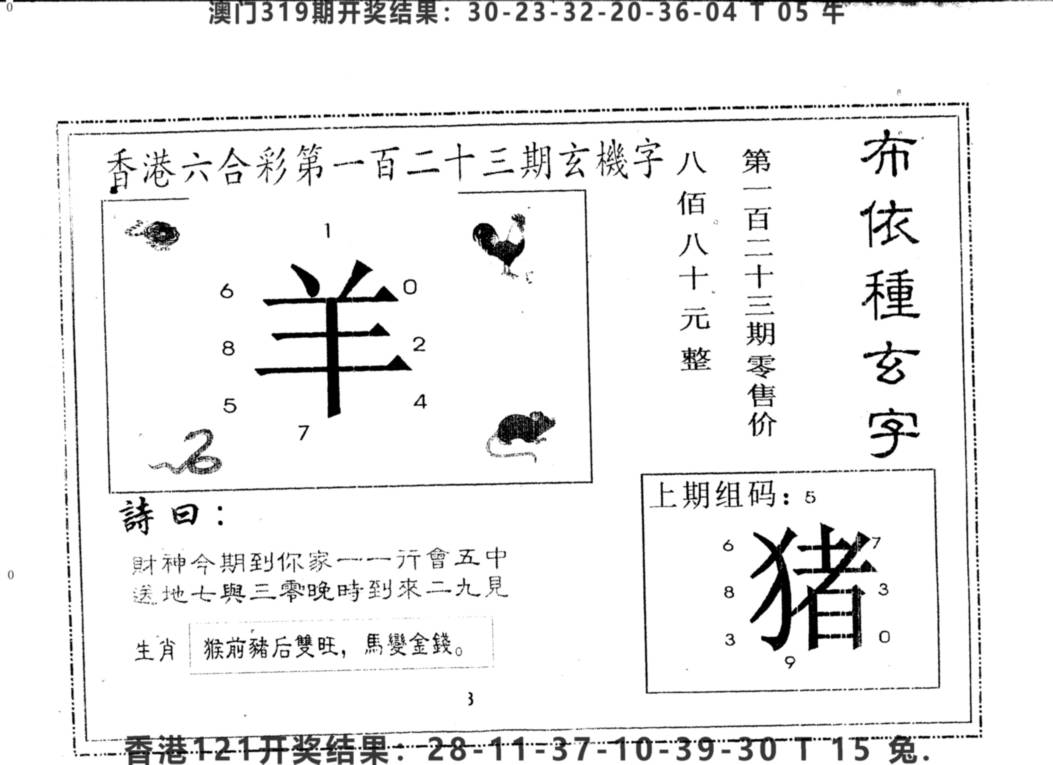 澳门319期开奖结果：30-23-32-20-36-04 T 05 牛
香港六合彩第一百二十三期玄機字
八佰八十元整
第一百二十三期零售价
布依種玄字
1
6 0
羊
8 2
5 4
7
上期组码：5
6 7
猪
8 3
3 0
9
詩曰：
財神今期到你家一一行會五中
送地七與三零晚時到來二九見
生肖 猴前豬后雙旺，馬變金錢。
香港121开奖结果：28-11-37-10-39-30 T 15 兔.